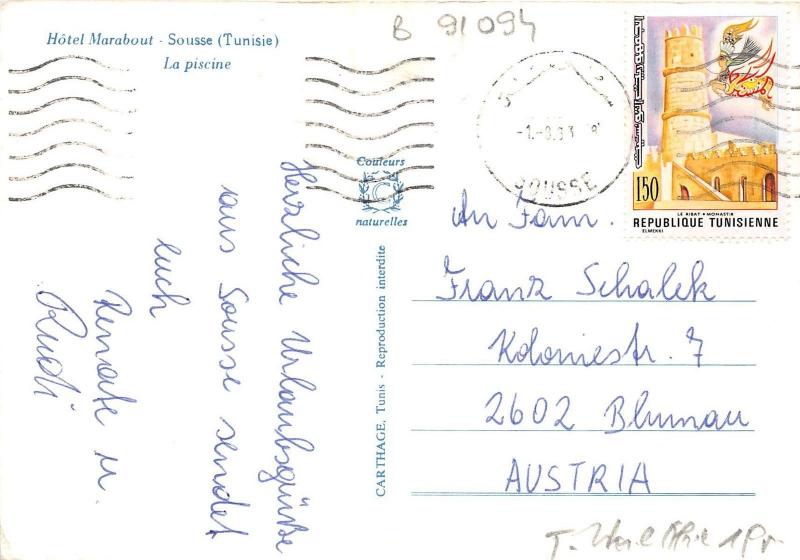 Hôtel Marabout - Sousse (Tunisie)
La piscine
B 91094
Herzliche Urlaubsgrüße
aus Sousse sendet
euch
Renate u.
Rudi
Couleurs
C
naturelles
CARTHAGE, Tunis - Reproduction interdite
SOUSSE
150
LE RIBAT • MONASTIR
REPUBLIQUE TUNISIENNE
ELMEKKI
An Fam.
Franz Schalek
Koloniestr. 7
2602 Blumau
AUSTRIA